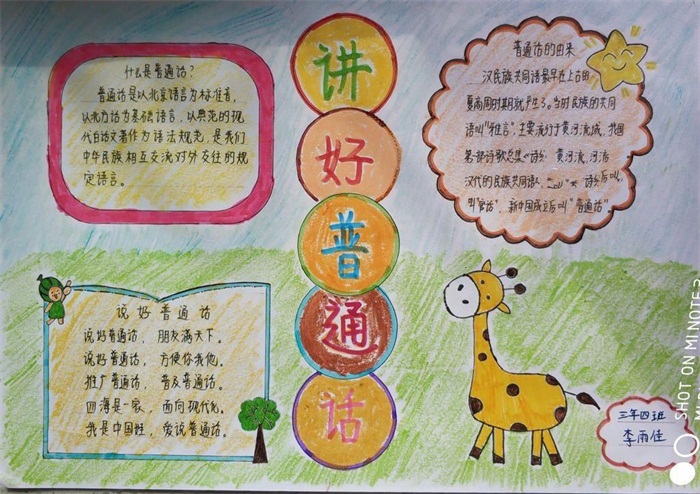 讲
好
普
通
话
什么是普通话?
普通话是以北京语言为标准音,
以北方话为基础语言,以典范的现
代白话文著作为语法规范,是我们
中华民族相互交流对外交往的规
定语言。
普通话的由来
汉民族共同语最早在上古的
夏商周时期就产生了。当时民族的共同
语叫"雅言",主要流行于黄河流域,我国
第一部诗歌总集《诗经》黄河流,河洛
汉代的民族共同语
叫"官话",新中国成立后叫"普通话"。
说好普通话
说好普通话,朋友满天下。
说好普通话,方便你我他。
推广普通话,普及普通话。
四海是一家,面向现代化。
我是中国娃,爱说普通话。
三年四班
李雨佳
SHOT ON MI NOTE 3